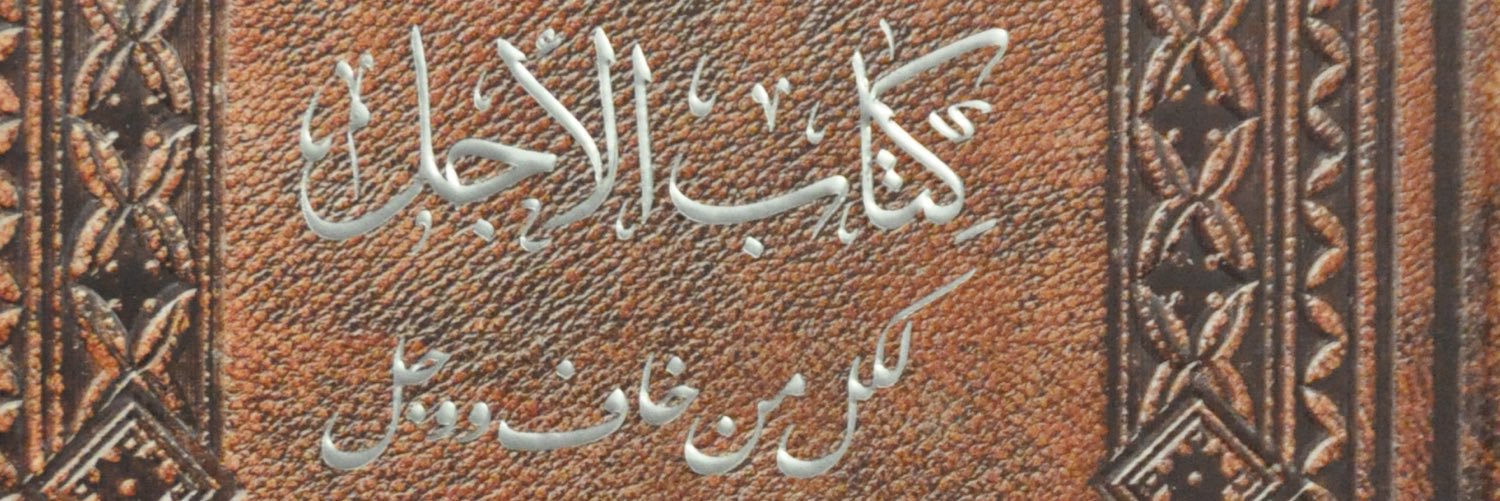 كِتَابُ الأَجل
لكل من خاف ووجل